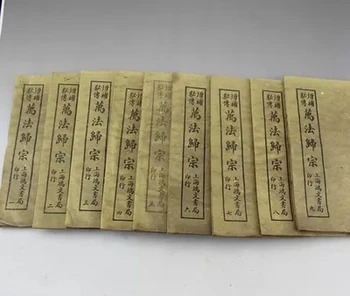 增補
秘傳
萬法歸宗
上海鴻文書局
印行
一
增補
秘傳
萬法歸宗
上海鴻文書局
印行
二
增補
秘傳
萬法歸宗
上海鴻文書局
印行
三
增補
秘傳
萬法歸宗
上海鴻文書局
印行
四
增補
秘傳
萬法歸宗
上海鴻文書局
印行
增補
秘傳
萬法歸宗
上海鴻文書局
印行
六
增補
秘傳
萬法歸宗
上海鴻文書局
印行
七
增補
秘傳
萬法歸宗
上海鴻文書局
印行
八
增補
秘傳
萬法歸宗
上海鴻文書局
印行
九